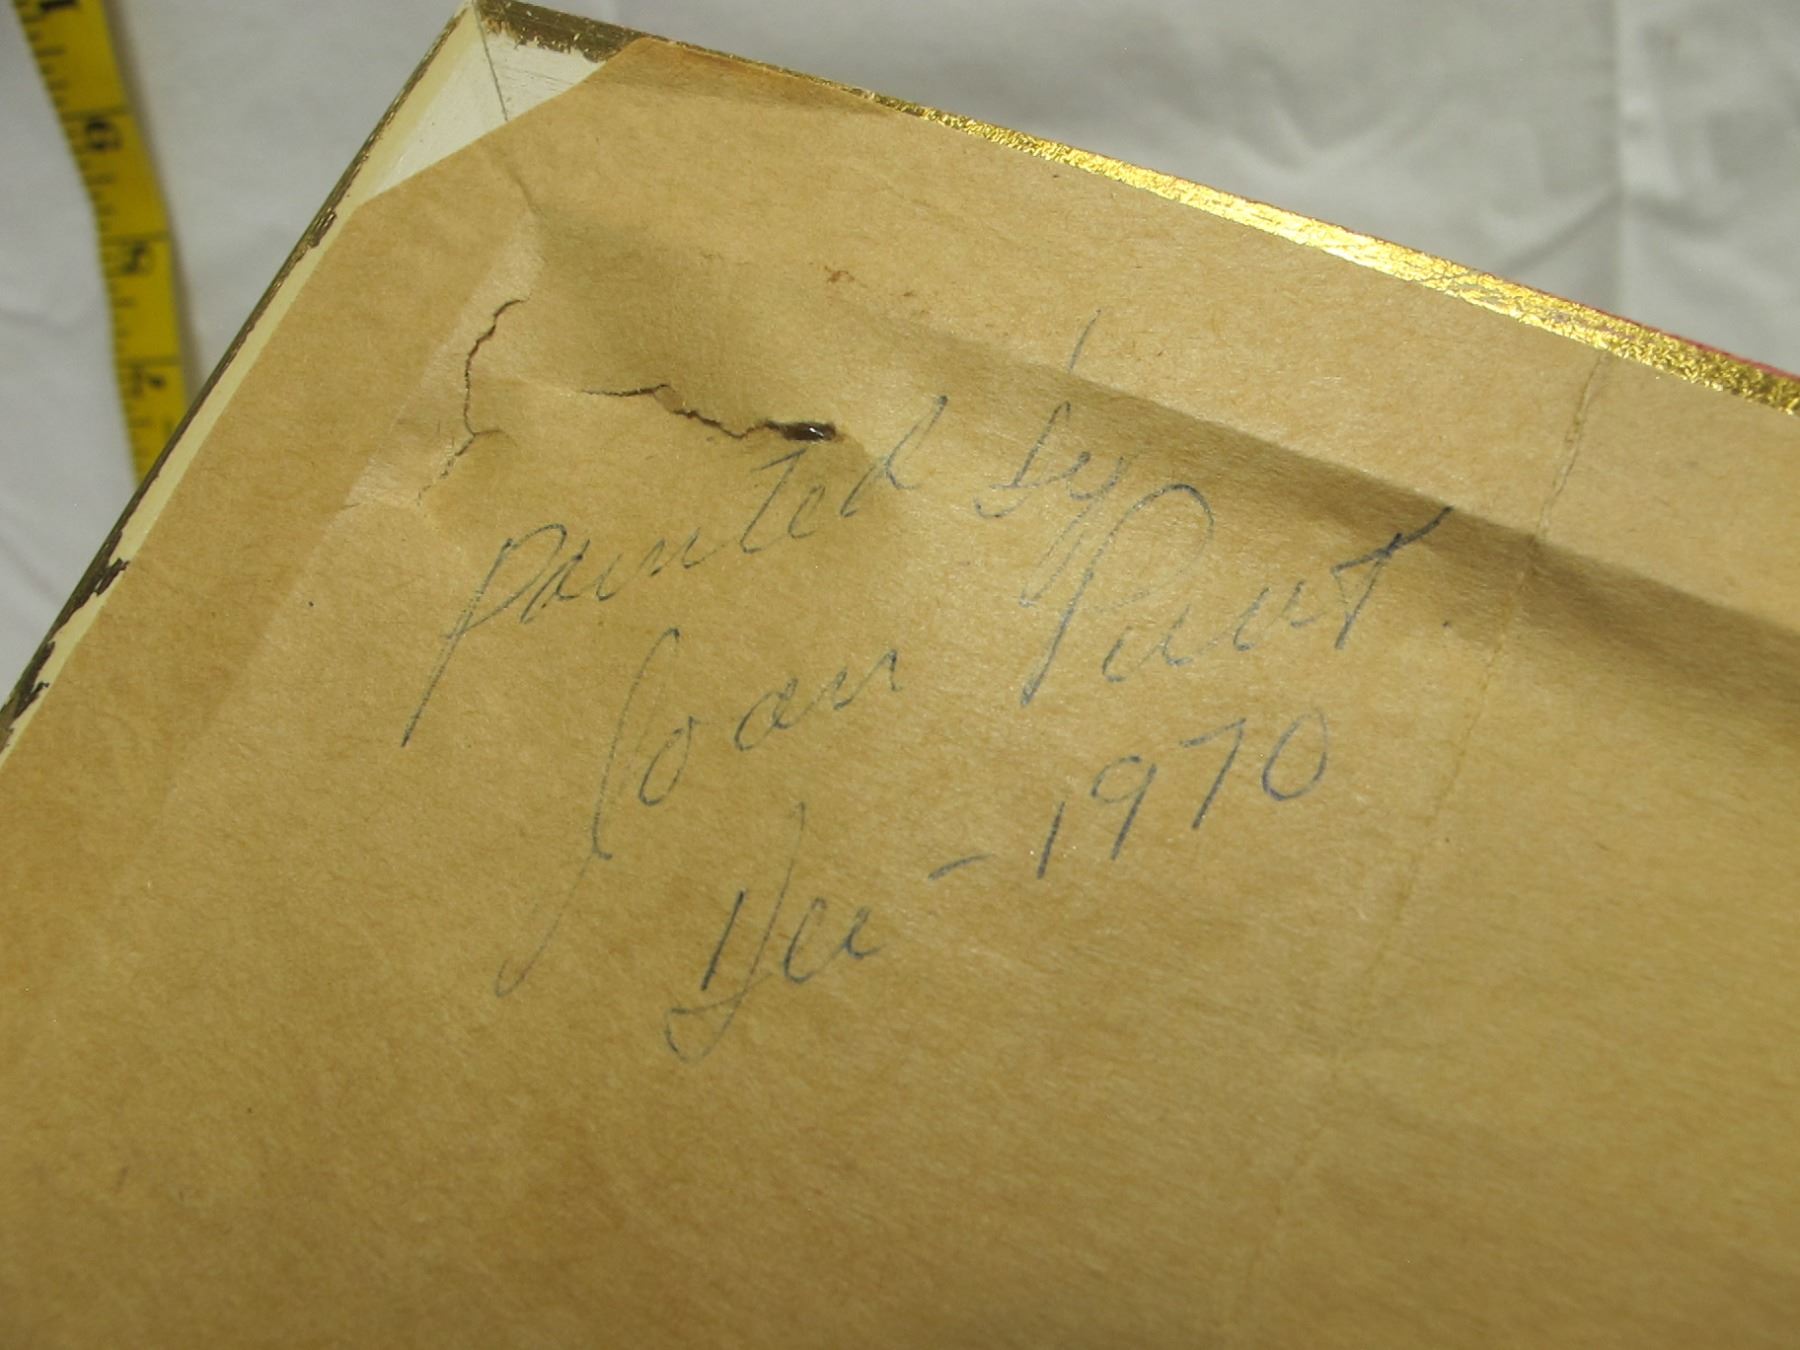 painted by
Joan
Dec - 1970